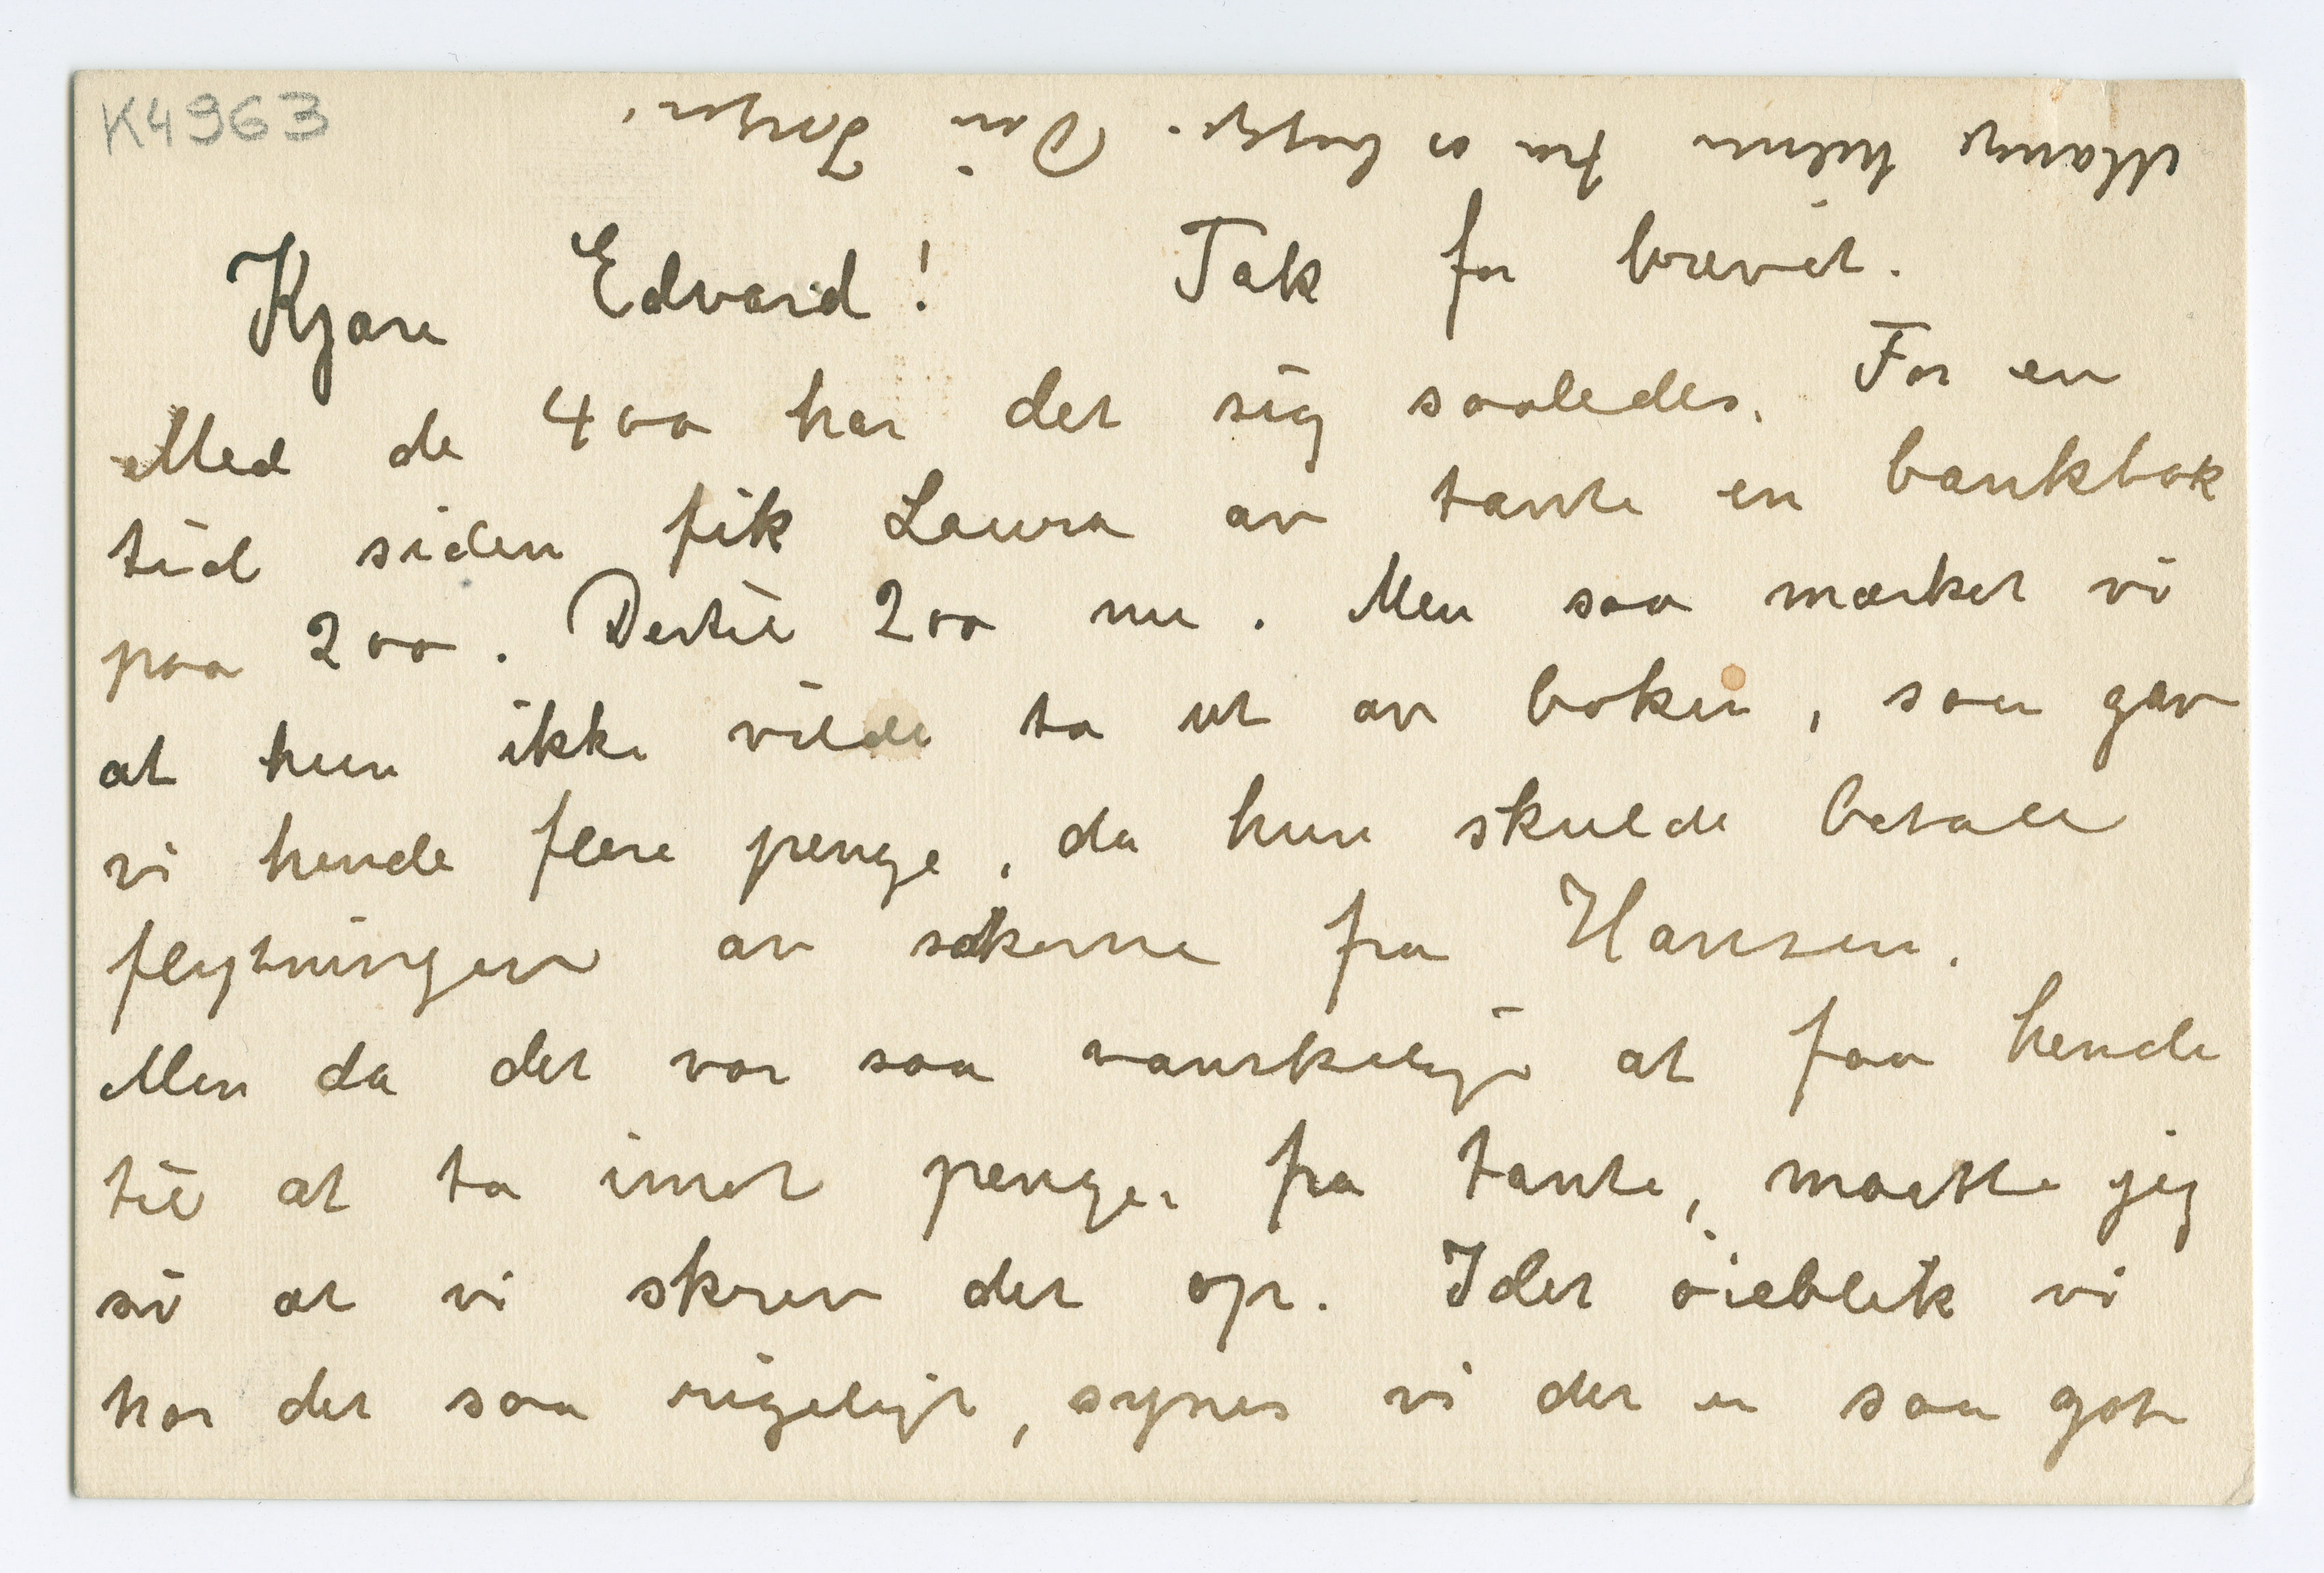 K4963
Kjære Edvard! Tak for brevet.
Med de 400 har det sig saaledes. For en
tid siden fik Laura av tante en bankbok
paa 200. Dertil 200 nu. Men saa mærket vi
at hun ikke vilde ta ut av boken, saa gav
vi hende flere penge, da hun skulde betale
flytningen av sakerne fra Hansen.
Men da det var saa vanskeligt at faa hende
til at ta imot penger fra tante, maatte jeg
si at vi skrev det op. I det øieblik vi
har det saa rigeligt, synes vi det er saa godt
Mange hilsner fra os begge. Din Inger.